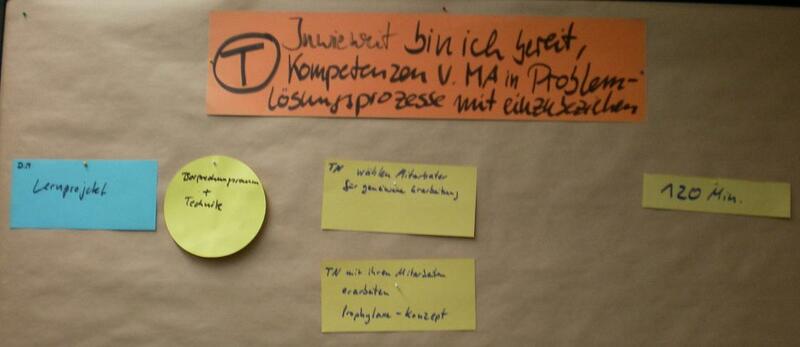 T
Inwieweit bin ich bereit,
Kompetenzen v. MA in Problem-
lösungsprozesse mit einzubeziehen
D.M
Lernprojekt
Besprechungsraum
+
Technik
TN wählen Mitarbeiter
für gemeinsame Erarbeitung
120 Min.
TN mit ihren Mitarbeitern
erarbeiten
Prophylaxe-Konzept